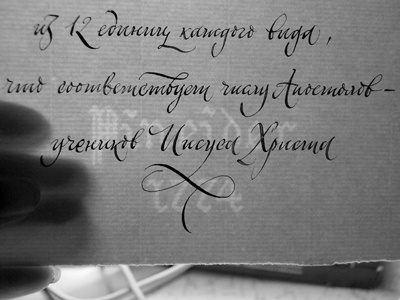 из 12 единиц каждого вида,
что соответствует числу Апостолов –
учеников Иисуса Христа
Pineider
1774